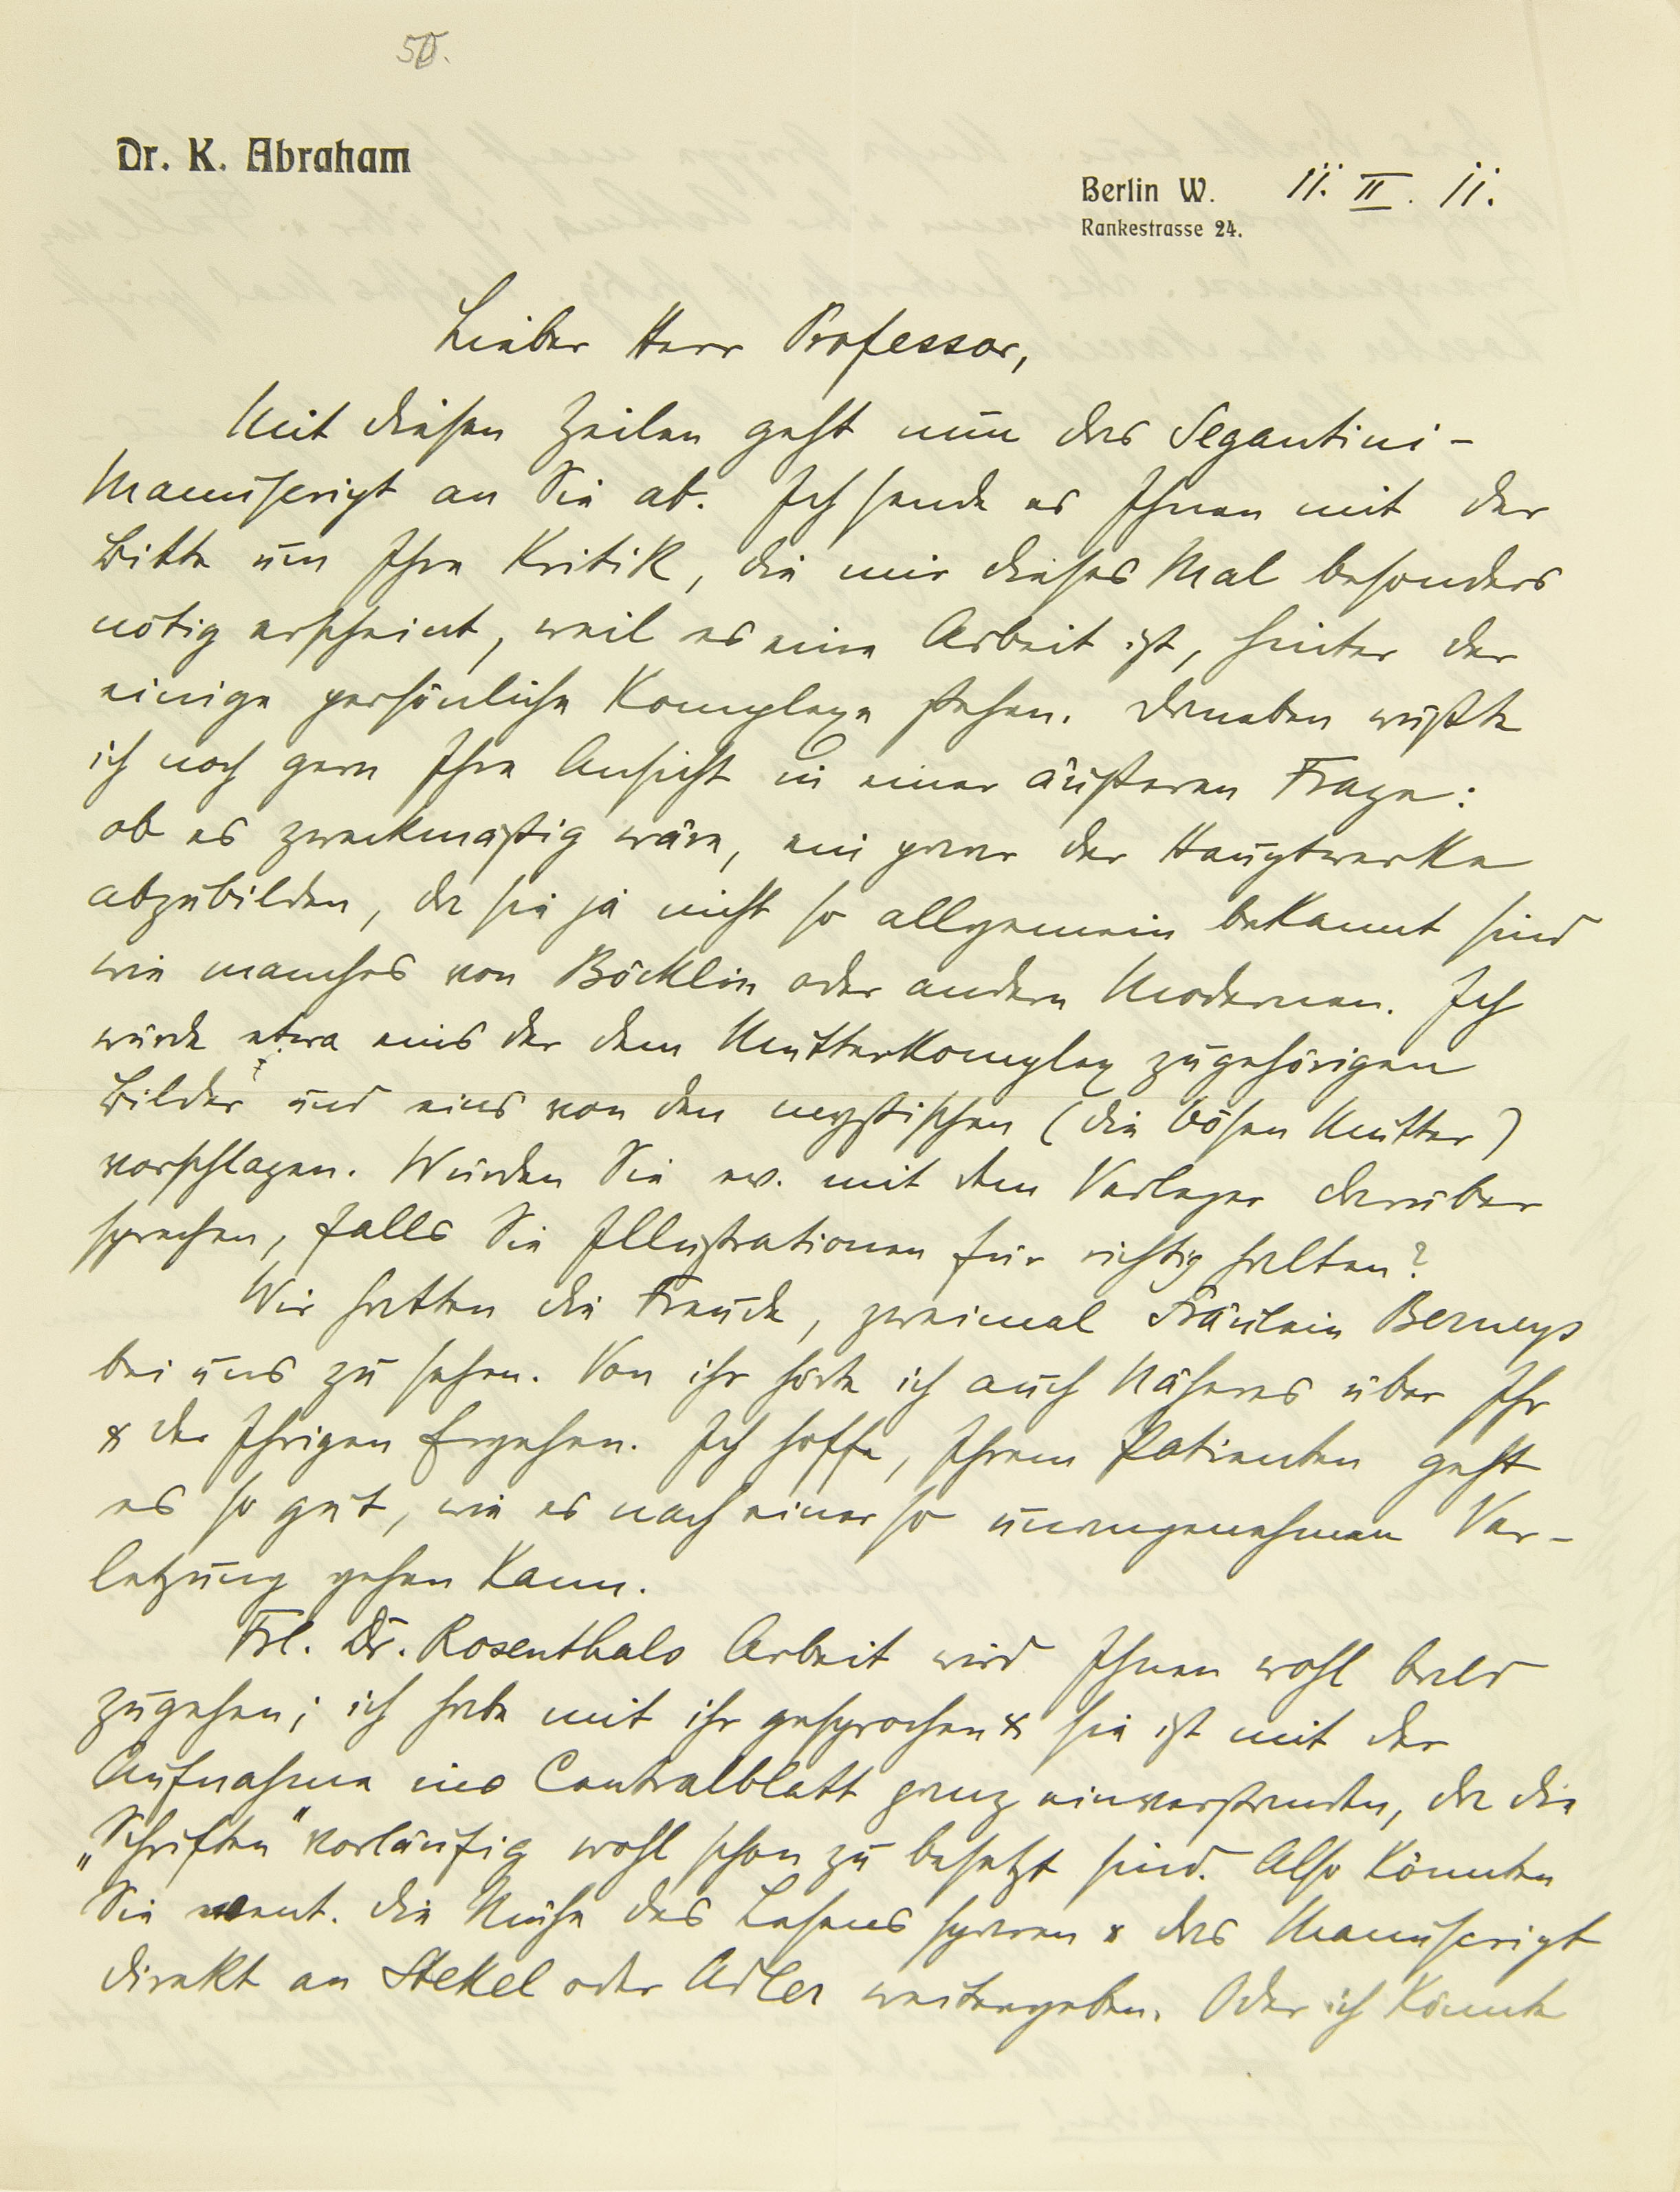 50.
Dr. K. Abraham
Berlin W. 11. II. 11.
Rankestrasse 24.
Lieber Herr Professor,
Mit diesen Zeilen geht nun das Segantini-
Manuscript an Sie ab. Ich sende es Ihnen mit der
Bitte um Ihre Kritik, die mir dieses Mal besonders
nötig erscheint, weil es eine Arbeit ist, hinter der
einige persönliche Komplexe stehen. Daneben wüßte
ich noch gern Ihre Ansicht in einer äußeren Frage:
ob es zweckmäßig wäre, ein paar der Hauptwerke
abzubilden, da sie ja nicht so allgemein bekannt sind
wie manches von Böcklin oder andern Modernen. Ich
würde etwa eins der dem Mutterkomplex zugehörigen
Bilder und eins von den mystischen (die bösen Mütter)
vorschlagen. Würden Sie ev. mit dem Verleger darüber
sprechen, falls Sie Illustrationen für richtig halten?
Wir hatten die Freude, zweimal Fräulein Bernays
bei uns zu sehen. Von ihr hörte ich auch Näheres über Ihr
& der Ihrigen Ergehen. Ich hoffe, Ihrem Patienten geht
es so gut, wie es nach einer so unangenehmen Ver-
letzung gehen kann.
Frl. Dr. Rosenthals Arbeit wird Ihnen wohl bald
zugehen; ich habe mit ihr gesprochen & sie ist mit der
Aufnahme ins Centralblatt ganz einverstanden, da die
„Schriften" vorläufig wohl schon zu besetzt sind. Also könnten
Sie event. die Mühe des Lesens sparen & das Manuscript
direkt an Stekel oder Adler weitergeben. Oder ich könnte